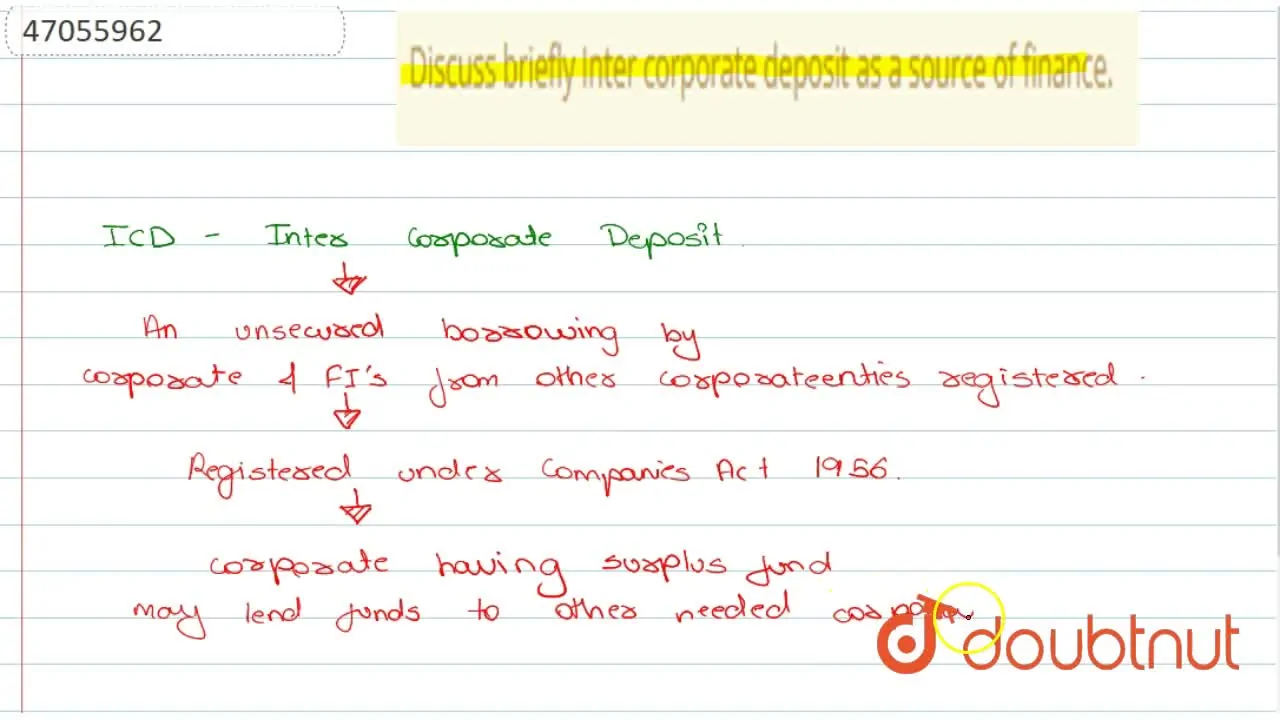 47055962
Discuss briefly Inter corporate deposit as a source of finance.
ICD - Inter Corporate Deposit.
An unsecured borrowing by
corporate & FI's from other corporateenties registered.
Registered under Companies Act 1956.
corporate having surplus fund
may lend funds to other needed
doubtnut